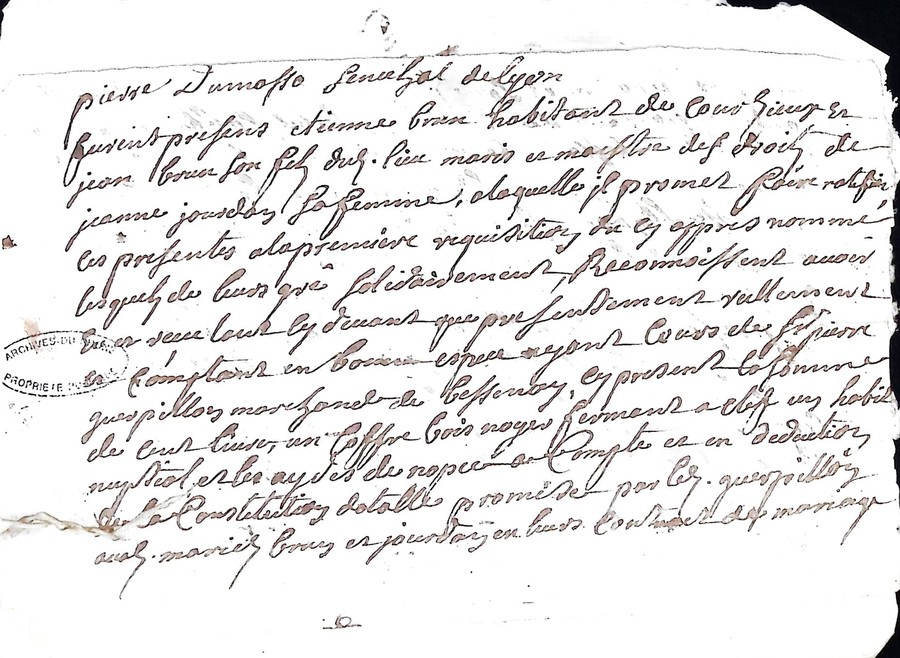 pierre Dumasso Senechal de lyon
furent presens etienne brun habitant de Courzieux et
jean brun son fils dud. lieu maris et maistre des droits de
jeanne jourdan sa femme, a laquelle il promet faire ratifier
ces presentes a la premiere requisition du cy appres nommé
lesquels de leurs gré solidairement, Reconnoissent avoir
eu et receu tant cy devant que presentement reellement
et Comptant en bonne espece ayant Cours de Sr pierre
guerpillon marchand de bessenay, cy present la somme
de cent livres, un Coffre bois noyer fermant a clef un habit
nuptial et les aydes de nopce a Compte et en deduction
de la Constitution dotalle promise par led. guerpillon
aud. mariés brun et jourdan en leurs Contract de mariage
ARCHIVES DU
PROPRIETE